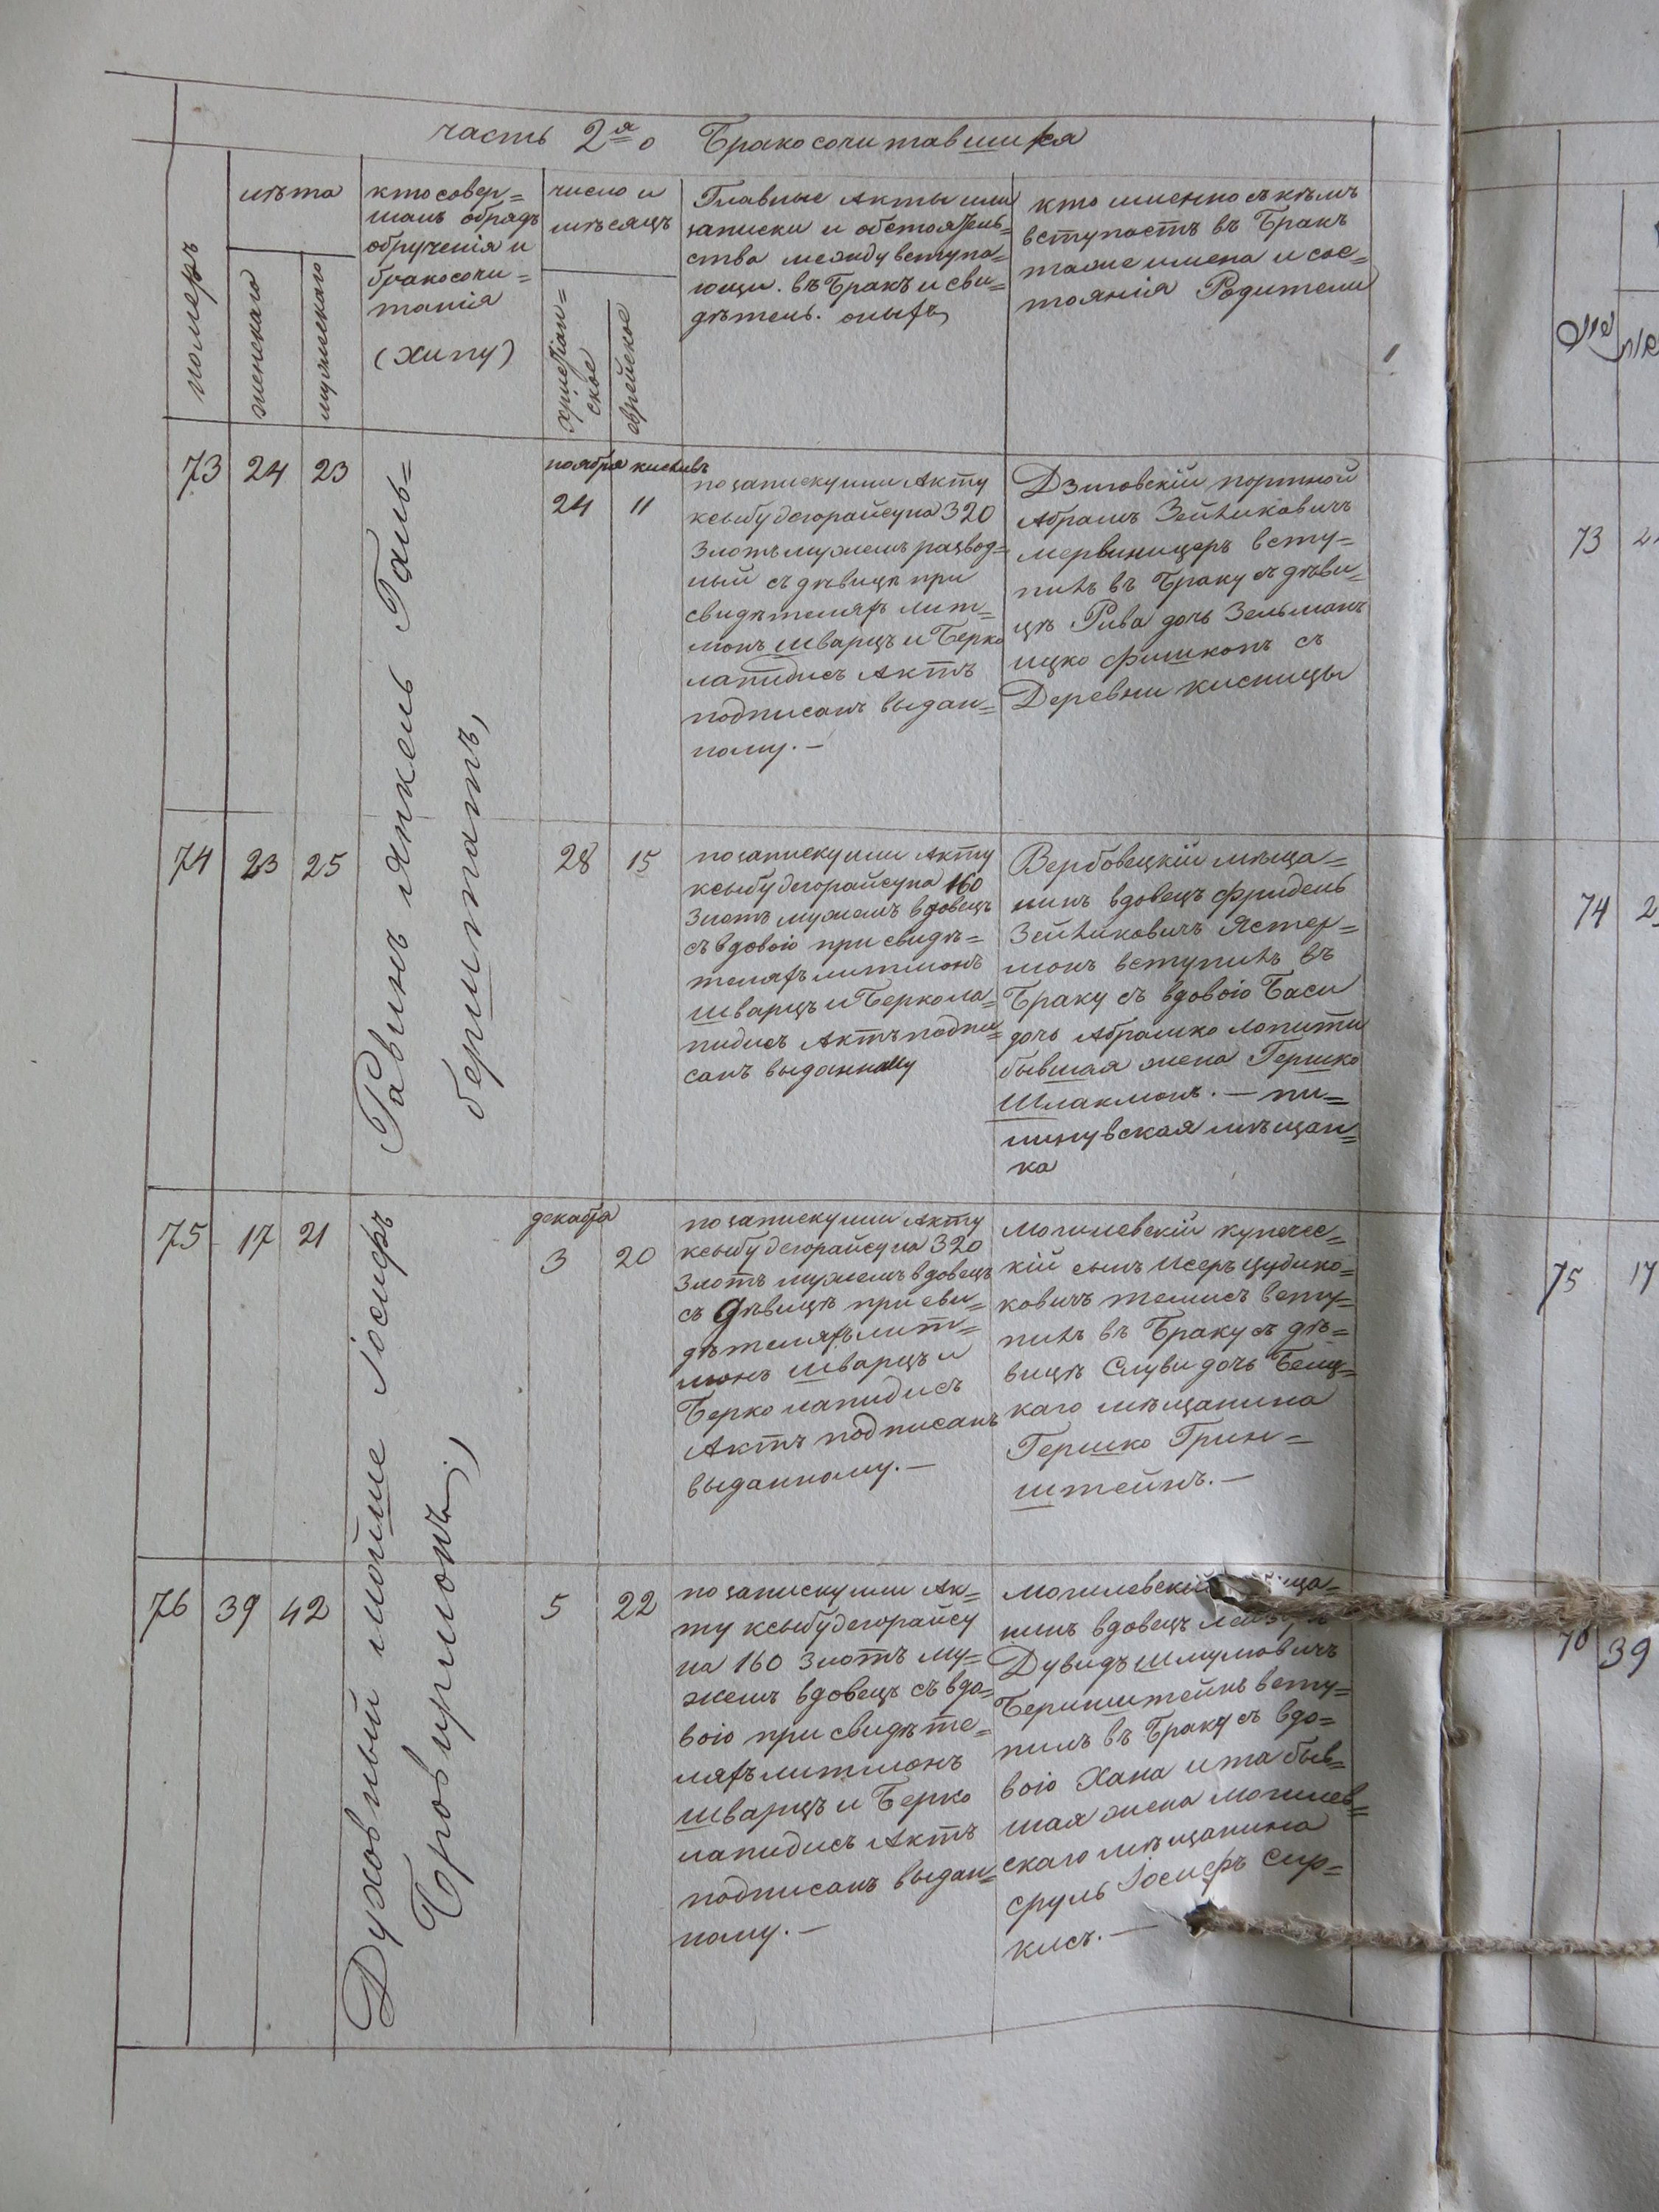 часть 2я о Бракосочитавшихся
номеръ
лѣта
женскаго
мужескаго
кто совер=
шалъ обрядъ
обрученія и
бракосочи=
танія
(хипу)
число и
мѣсяцъ
христіан=
ское
еврейское
Главные Акты или
записки и обстоятель=
ства между вступа=
ющи. въ Бракъ и сви=
дѣтель. оныхъ
кто именно съ кѣмъ
вступаетъ въ Бракъ
также имена и сос=
тоянія Родители
Равинъ Янкель Галь=
берштатъ,
Духовный мойше Іосифъ
Бровирмонъ,
73 24 23
ноября кислевъ
24 11
по записку или Акту
ксыбу дегорайсу на 320
Злотъ мужемъ развод=
ный съ дѣвицѣ при
свидѣтеляхъ лит=
монъ Шварцъ и Берко
лапидисъ Актъ
подписанъ выдан=
ному. —
Дзиговскій портной
Абрамъ Зейликовичъ
мервиницеръ всту=
пилъ въ Браку съ дѣви=
цѣ Рива дочь Зельманъ
ицко фишконъ съ
Деревни кисницы
74 23 25
28 15
по записку или Акту
ксыбу дегорайсу на 160
Злотъ мужемъ вдовецъ
съ вдовою при свидѣ=
теляхъ литмонъ
Шварцъ и Берко ла=
пидисъ Актъ подпи=
санъ выданному
Вербовецкій мѣща=
нинъ вдовецъ фридель
Зейликовичъ Ястер=
монъ вступилъ въ
Браку съ вдовою Баси
дочь Абрамко лопити
бывшая жена Гершко
Шлакмонъ. — пи=
нинувская мѣщан=
ка
75 17 21
декабря
3 20
по записку или Акту
ксыбу дегорайсу на 320
Злотъ мужемъ вдовецъ
съ дѣвицѣ при сви=
дѣтеляхъ лит=
монъ Шварцъ и
Берко лапидисъ
Актъ подписанъ
выданному. —
Могилевскій купечес=
кій сынъ Исеръ Цудико=
ковичъ темисъ всту=
пилъ въ Браку съ дѣ=
вицѣ Слуви дочь Белц=
каго мѣщанина
Гершко Грин=
штейнъ. —
76 39 42
5 22
по записку или Ак=
ту ксыбу дегорайсу
на 160 Злотъ му=
жемъ вдовецъ съ вдо=
вою при свидѣте=
ляхъ литмонъ
Шварцъ и Берко
лапидисъ Актъ
подписанъ выдан=
ному. —
Могилевскій ща=
нинъ вдовецъ
Дувидъ Шмулювичъ
Бериштейнъ всту=
пилъ въ Браку съ вдо=
вою Хана и та быв=
шая жена Могилев=
скаго мѣщанина
сруль Іосифъ Сир=
кисъ. —
73
74 2
75 17
76 39